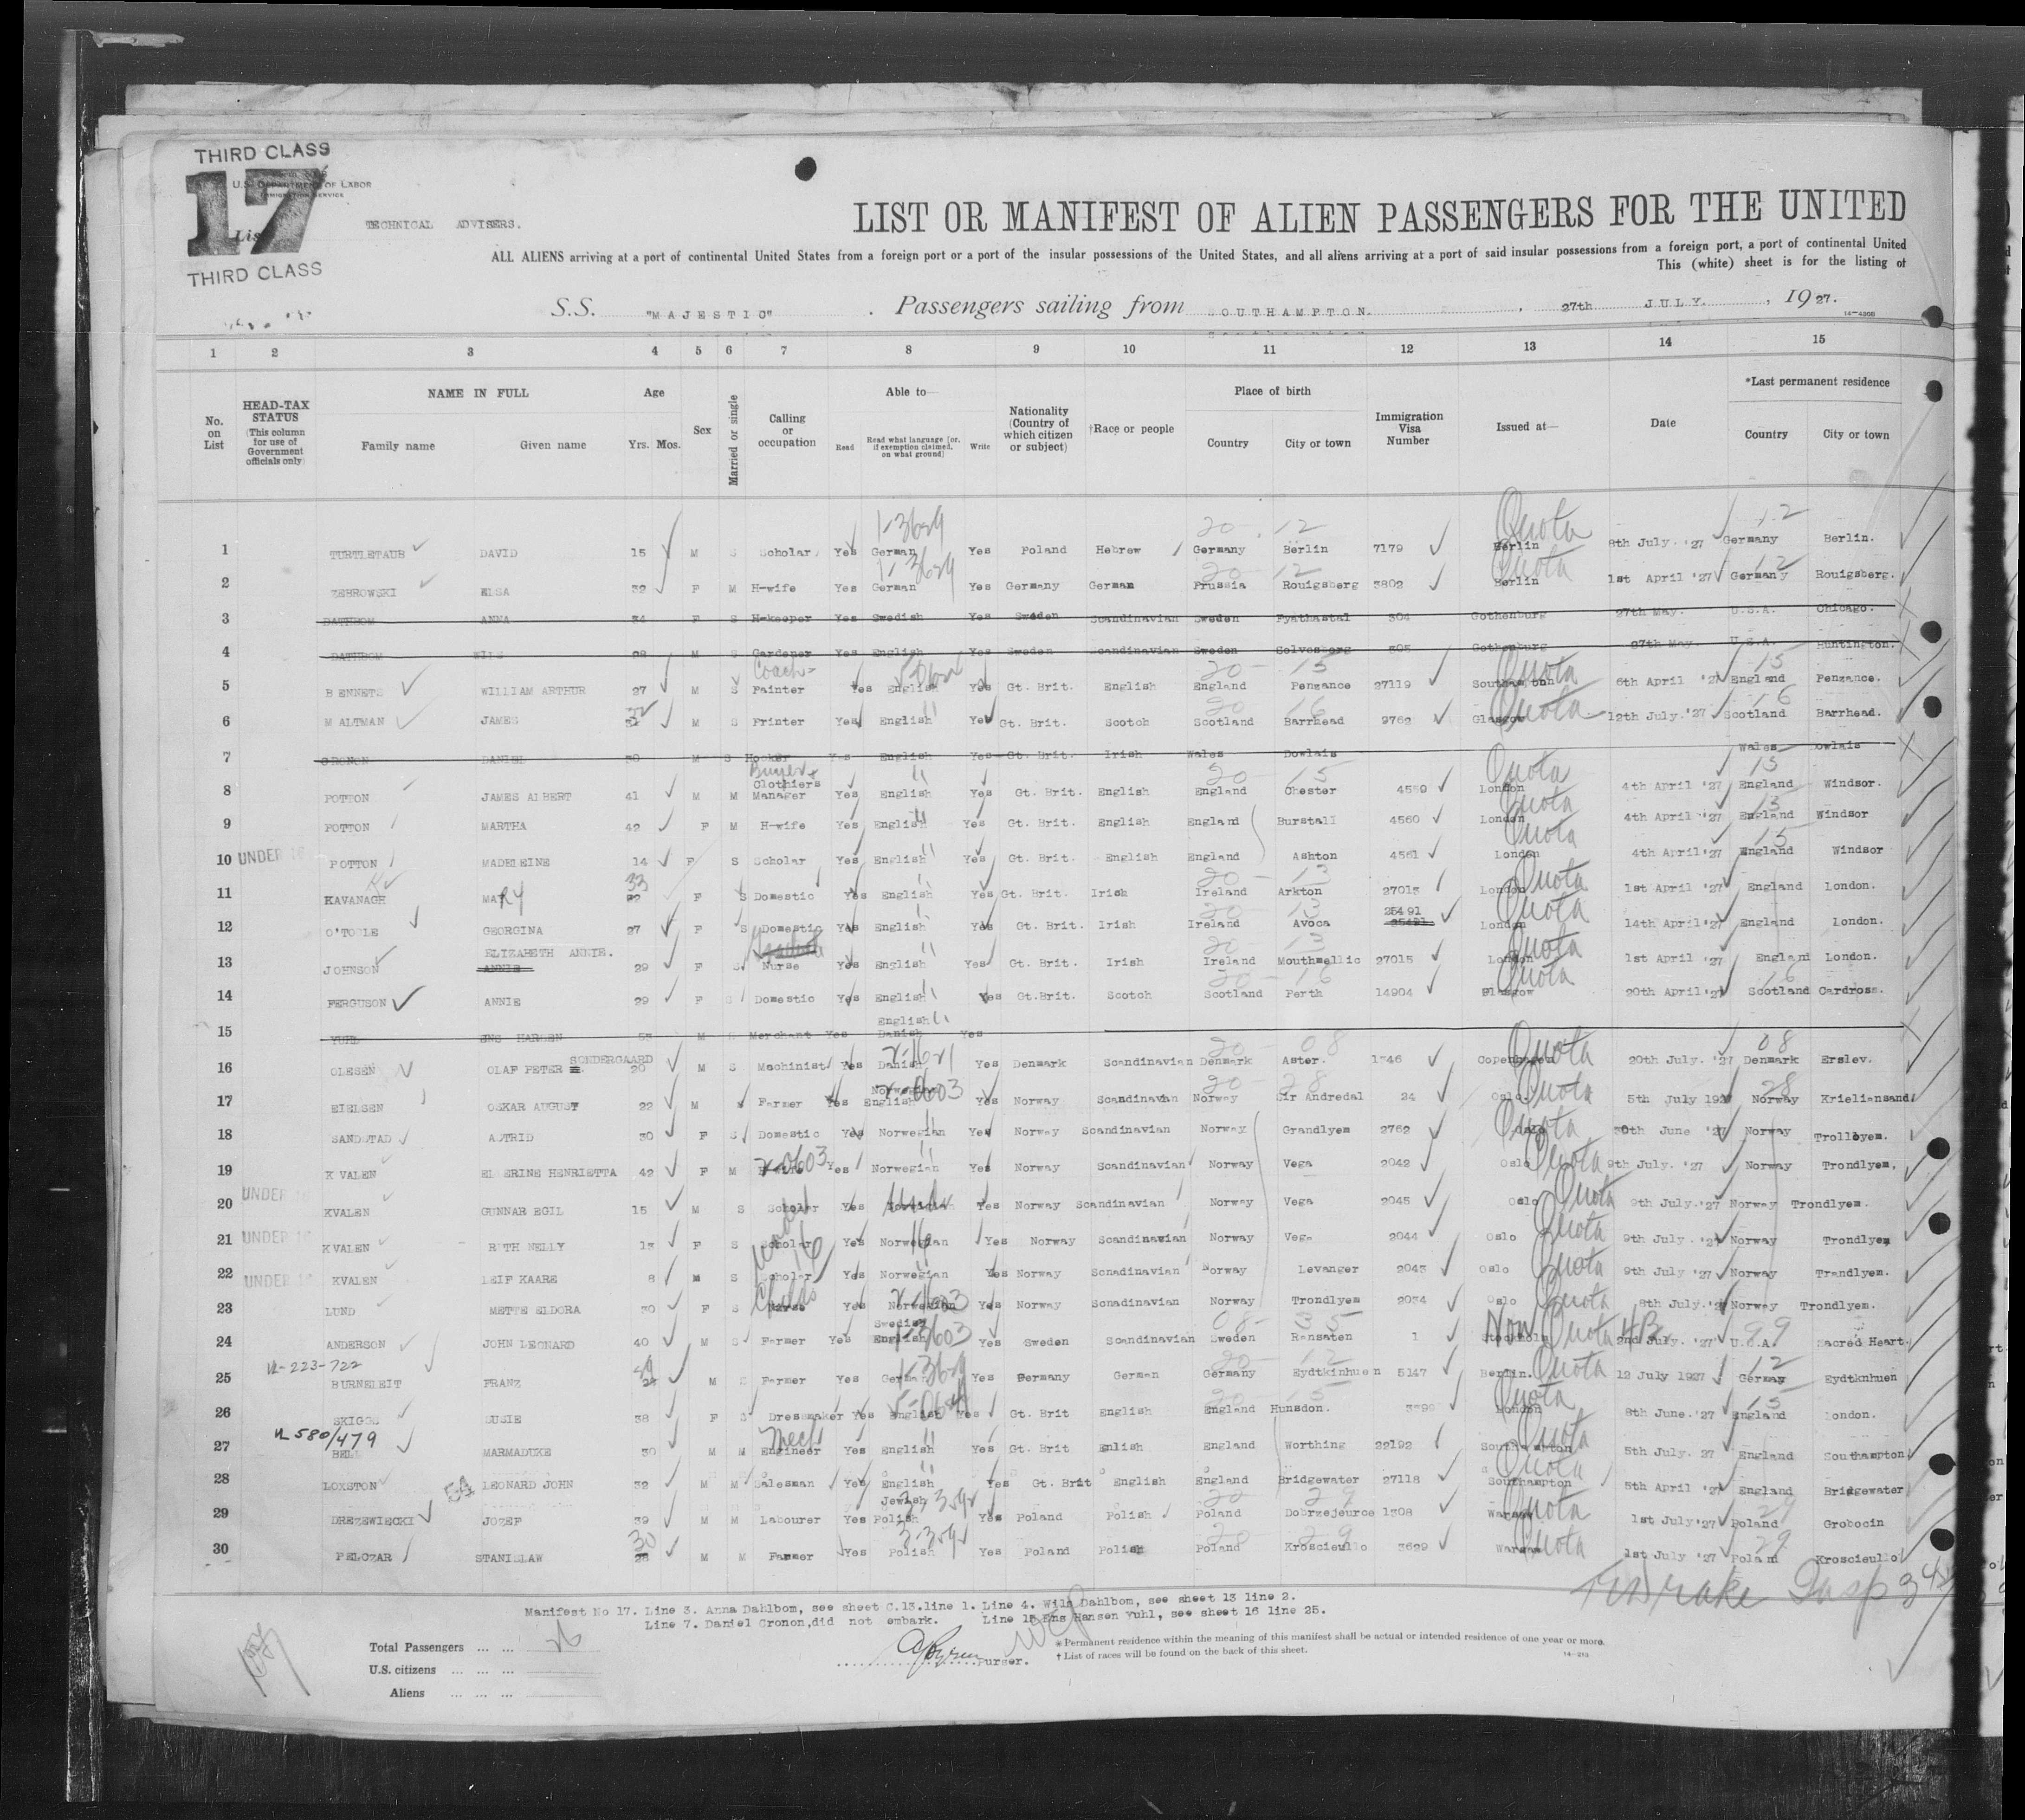 THIRD CLASS
17
U.S. DEPARTMENT OF LABOR
IMMIGRATION SERVICE
List
THIRD CLASS
TECHNICAL ADVISERS.
LIST OR MANIFEST OF ALIEN PASSENGERS FOR THE UNITED
ALL ALIENS arriving at a port of continental United States from a foreign port or a port of the insular possessions of the United States, and all aliens arriving at a port of said insular possessions from a foreign port, a port of continental United
This (white) sheet is for the listing of
S.S. "MAJESTIC" . Passengers sailing from SOUTHAMPTON. , 27th JULY. , 1927.
1 2 3 4 5 6 7 8 9 10 11 12 13 14 15
No. on List HEAD-TAX STATUS (This column for use of Government officials only) NAME IN FULL Family name Given name Age Yrs. Mos. Sex Married or single Calling or occupation Able to— Read Read what language [or, if exemption claimed, on what ground] Write Nationality (Country of which citizen or subject) †Race or people Place of birth Country City or town Immigration Visa Number Issued at— Date *Last permanent residence Country City or town
1 TURTLETAUB DAVID 15 M S Scholar Yes German 1-3629 Yes Poland Hebrew Germany Berlin 20 12 7179 Berlin Quota 8th July. '27 Germany Berlin. 12
2 ZEBROWSKI ELSA 32 F M H-wife Yes German 1-3629 Yes Germany German Prussia Rouigsberg 20 12 3802 Berlin Quota 1st April '27 Germany Rouigsberg. 12
3 DATHBOM ANNA 34 F S H-keeper Yes Swedish Yes Sweden Scandinavian Sweden Fyathastal 304 Gothenburg 27th May. U.S.A. Chicago.
4 DATHBOM WILS 28 M S Gardener Yes English Yes Sweden Scandinavian Sweden Solvesberg 305 Gothenburg 27th May. U.S.A. Huntington.
5 BENNETS WILLIAM ARTHUR 27 M S Coach- Painter Yes English Yes Gt. Brit. English England Penzance 20 15 27119 Southampton Quota 6th April '27 England Penzance. 15
6 MALTMAN JAMES 32 M S Printer Yes English " Yes Gt. Brit. Scotch Scotland Barrhead 20 16 9762 Glasgow Quota 12th July.'27 Scotland Barrhead. 16
7 CRONON DANIEL 30 M S Hooker Yes English Yes Gt. Brit. Irish Wales Dowlais Wales Dowlais
8 POTTON JAMES ALBERT 41 M M Buyer & Clothiers Manager Yes English " Yes Gt. Brit. English England Chester 20 15 4559 London Quota 4th April '27 England Windsor. 15
9 POTTON MARTHA 42 F M H-wife Yes English " Yes Gt. Brit. English England Burstall 4560 London Quota 4th April '27 England Windsor 15
10 UNDER 16 POTTON MADELEINE 14 F S Scholar Yes English " Yes Gt. Brit. English England Ashton 4561 London Quota 4th April'27 England Windsor 15
11 KAVANAGH MARY 33 F S Domestic Yes English " Yes Gt. Brit. Irish Ireland Arkton 20 13 27013 London Quota 1st April '27 England London.
12 O'TOOLE GEORGINA 27 F S Domestic Yes English " Yes Gt. Brit. Irish Ireland Avoca 20 13 25491 London Quota 14th April'27 England London.
13 JOHNSON ELIZABETH ANNIE. ANNIE 29 F S Nurse Yes English " Yes Gt. Brit. Irish Ireland Mouthmellic 20 13 27015 London Quota 1st April '27 England London.
14 FERGUSON ANNIE 29 F S Domestic Yes English " Yes Gt.Brit. Scotch Scotland Perth 20 16 14904 Glasgow Quota 20th April'27 Scotland Cardross. 16
15 YUHL ENS HANSEN 53 M Merchant Yes English Danish Yes
16 OLESEN OLAF PETER SONDERGAARD 20 M S Machinist Yes Danish Yes Denmark Scandinavian Denmark Aster. 20 08 1346 Copenhagen Quota 20th July. '27 Denmark Erslev. 08
17 EIELSEN OSKAR AUGUST 22 M S Farmer Yes Norwegian English Yes Norway Scandinavian Norway Sir Andredal 20 28 24 Oslo. Quota 5th July 1927 Norway Krieliansand 28
18 SANDSTAD ASTRID 30 F S Domestic Yes Norwegian " Yes Norway Scandinavian Norway Grandlyem 2762 Oslo Quota 30th June '27 Norway Trollbyem.
19 KVALEN ELBERINE HENRIETTA 42 F M H-wife Yes Norwegian " Yes Norway Scandinavian Norway Vega 2042 Oslo Quota 9th July. '27 Norway Trondlyem.
20 UNDER 16 KVALEN GUNNAR EGIL 15 M S Scholar Yes Norwegian Yes Norway Scandinavian Norway Vega 2045 Oslo Quota 9th July.'27 Norway Trondlyem.
21 UNDER 16 KVALEN RUTH NELLY 13 F S Scholar Yes Norwegian Yes Norway Scandinavian Norway Vega 2044 Oslo Quota 9th July. '27 Norway Trondlyem
22 UNDER 16 KVALEN LEIF KAARE 8 M S Scholar Yes Norwegian Yes Norway Scnadinavian Norway Levanger 2043 Oslo Quota 9th July '27 Norway Trandlyem.
23 LUND METTE ELDORA 30 F S Childs Nurse Yes Norwegian Yes Norway Scnadinavian Norway Trondlyem 2034 Oslo Quota 8th July.'27 Norway Trondlyem.
24 ANDERSON JOHN LEONARD 40 M S Farmer Yes Swedish English Yes Sweden Scandinavian Sweden Ransaten 08 35 1 Stockholm Non Quota 4B 2nd July. '27 U.S.A. Sacred Heart. 99
25 VL-223-722 BURNELEIT FRANZ M S Farmer Yes German 1-3629 Yes Germany German Germany Eydtkinhuen 20 12 5147 Berlin. Quota 12 July 1927 Germay Eydtknhuen 12
26 SKIGGS SUSIE 38 F S Dressmaker Yes English Yes Gt. Brit English England Hunsdon. 20 15 3799 London Quota 8th June.'27 England London. 15
27 VL 580/479 BELL MARMADUKE 30 M M Mech Engineer Yes English " Yes Gt. Brit Enlish England Worthing 22192 Southampton Quota 5th July. 27 England Southampton
28 LOXSTON LEONARD JOHN 32 M M Salesman Yes English " Yes Gt. Brit English England Bridgewater 27118 Southampton Quota 5th April '27 England Bridgewater
29 DREZEWIECKI JOZEF 39 M M Labourer Yes Jewish Polish Yes Poland Polish Poland Dobrzejeurce 20 29 1308 Warsaw Quota 1st July'27 Poland Grobocin 29
30 PELCZAR STANISLAW 30 M M Farmer Yes Polish Yes Poland Polish Poland Kroscieullo 20 29 3629 Warsaw Quota 1st July '27 Poland Kroscieullo 29
Manifest No 17. Line 3. Anna Dahlbom, see sheet C.13.line 1. Line 4. Wils Dahlbom, see sheet 13 line 2.
Line 7. Daniel Cronon,did not embark. Line 15 Ens Hansen Yuhl, see sheet 16 line 25.
Total Passengers ... ... 26
U.S. citizens ... ... ...
Aliens ... ... ...
Purser.
* Permanent residence within the meaning of this manifest shall be actual or intended residence of one year or more.
† List of races will be found on the back of this sheet.